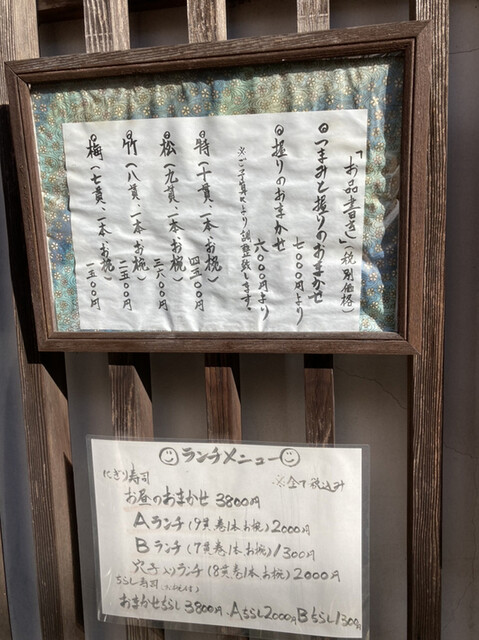 「お品書き」(税別価格)
◎つまみと握りのおまかせ
七〇〇〇円より
◎握りのおまかせ
六〇〇〇円より
※ご予算により調整致します。
◎特(十貫、一本、お椀)
四三〇〇円
◎松(九貫、一本、お椀)
三六〇〇円
◎竹(八貫、一本、お椀)
二五〇〇円
◎梅(七貫、一本、お椀)
一五〇〇円
ランチメニュー
にぎり寿司 ※全て税込み
お昼のおまかせ 3800円
Aランチ(9貫巻1本お椀)2000円
Bランチ(7貫巻1本お椀)1300円
穴子入りランチ(8貫巻1本お椀)2000円
ちらし寿司
おまかせちらし3800円、Aちらし2000円Bちらし1300円